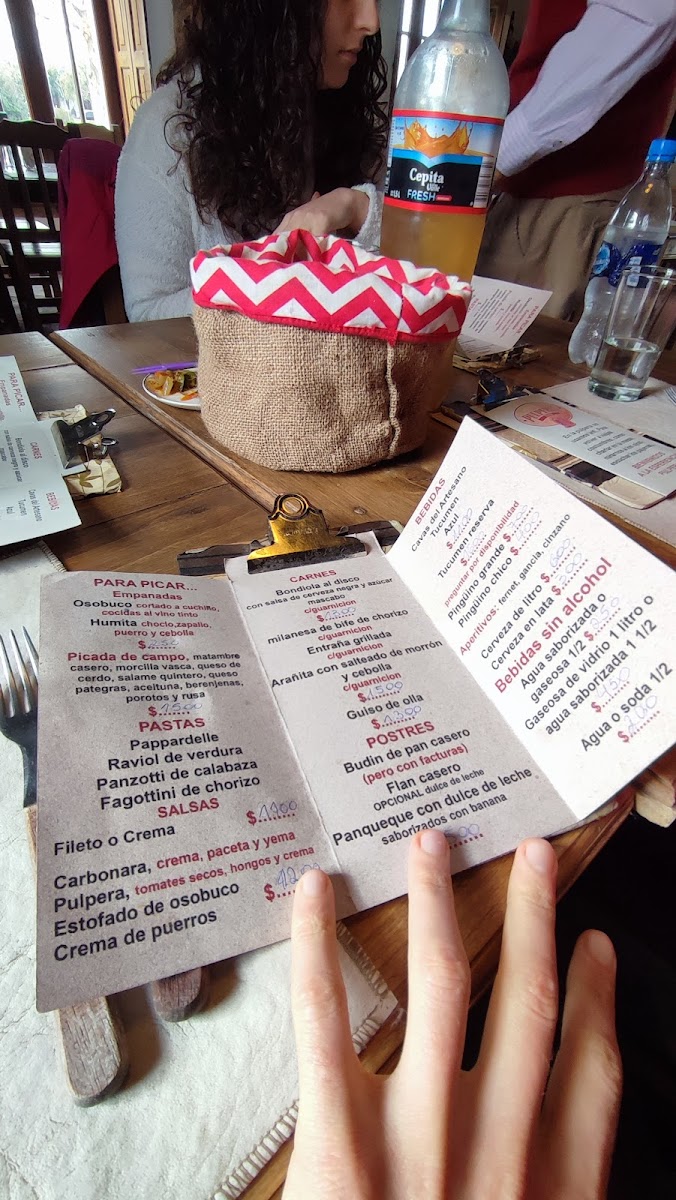 PARA PICAR...
Empanadas
Osobuco cortado a cuchillo,
cocidas al vino tinto
Humita choclo,zapallo,
puerro y cebolla
Picada de campo, matambre
casero, morcilla vasca, queso de
cerdo, salame quintero, queso
pategras, aceituna, berenjenas,
porotos y rusa
$1500
PASTAS
Pappardelle
Raviol de verdura
Panzotti de calabaza
Fagottini de chorizo
SALSAS
Fileto o Crema
$1100
Carbonara, crema, paceta y yema
Pulpera, tomates secos, hongos y crema
Estofado de osobuco
Crema de puerros
CARNES
Bondiola al disco
con salsa de cerveza negra y azúcar
mascabo
c/guarnicion
milanesa de bife de chorizo
c/guarnicion
Entraña grillada
c/guarnicion
Arañita con salteado de morrón
y cebolla
c/guarnicion
$1500
Guiso de olla
$1300
POSTRES
Budin de pan casero
(pero con facturas)
Flan casero
OPCIONAL dulce de leche
Panqueque con dulce de leche
saborizados con banana
BEBIDAS
Cavas del Artesano
Tucumen
Azul
Tucumen reserva
preguntar por disponibilidad
Pingüino grande $
Pingüino chico $
Aperitivos: fernet, gancia, cinzano
Cerveza de litro $
Cerveza en lata $
Bebidas sin alcohol
Agua saborizada o
gaseosa 1/2 $
Gaseosa de vidrio 1 litro o
agua saborizada 1 1/2
$450
Agua o soda 1/2
$200
Cepita
FRESH
PARA PICAR...
Empanadas
CARNES
Bondiola al disco
BEBIDAS
Cavas del Artesano
Tucumen
Azul